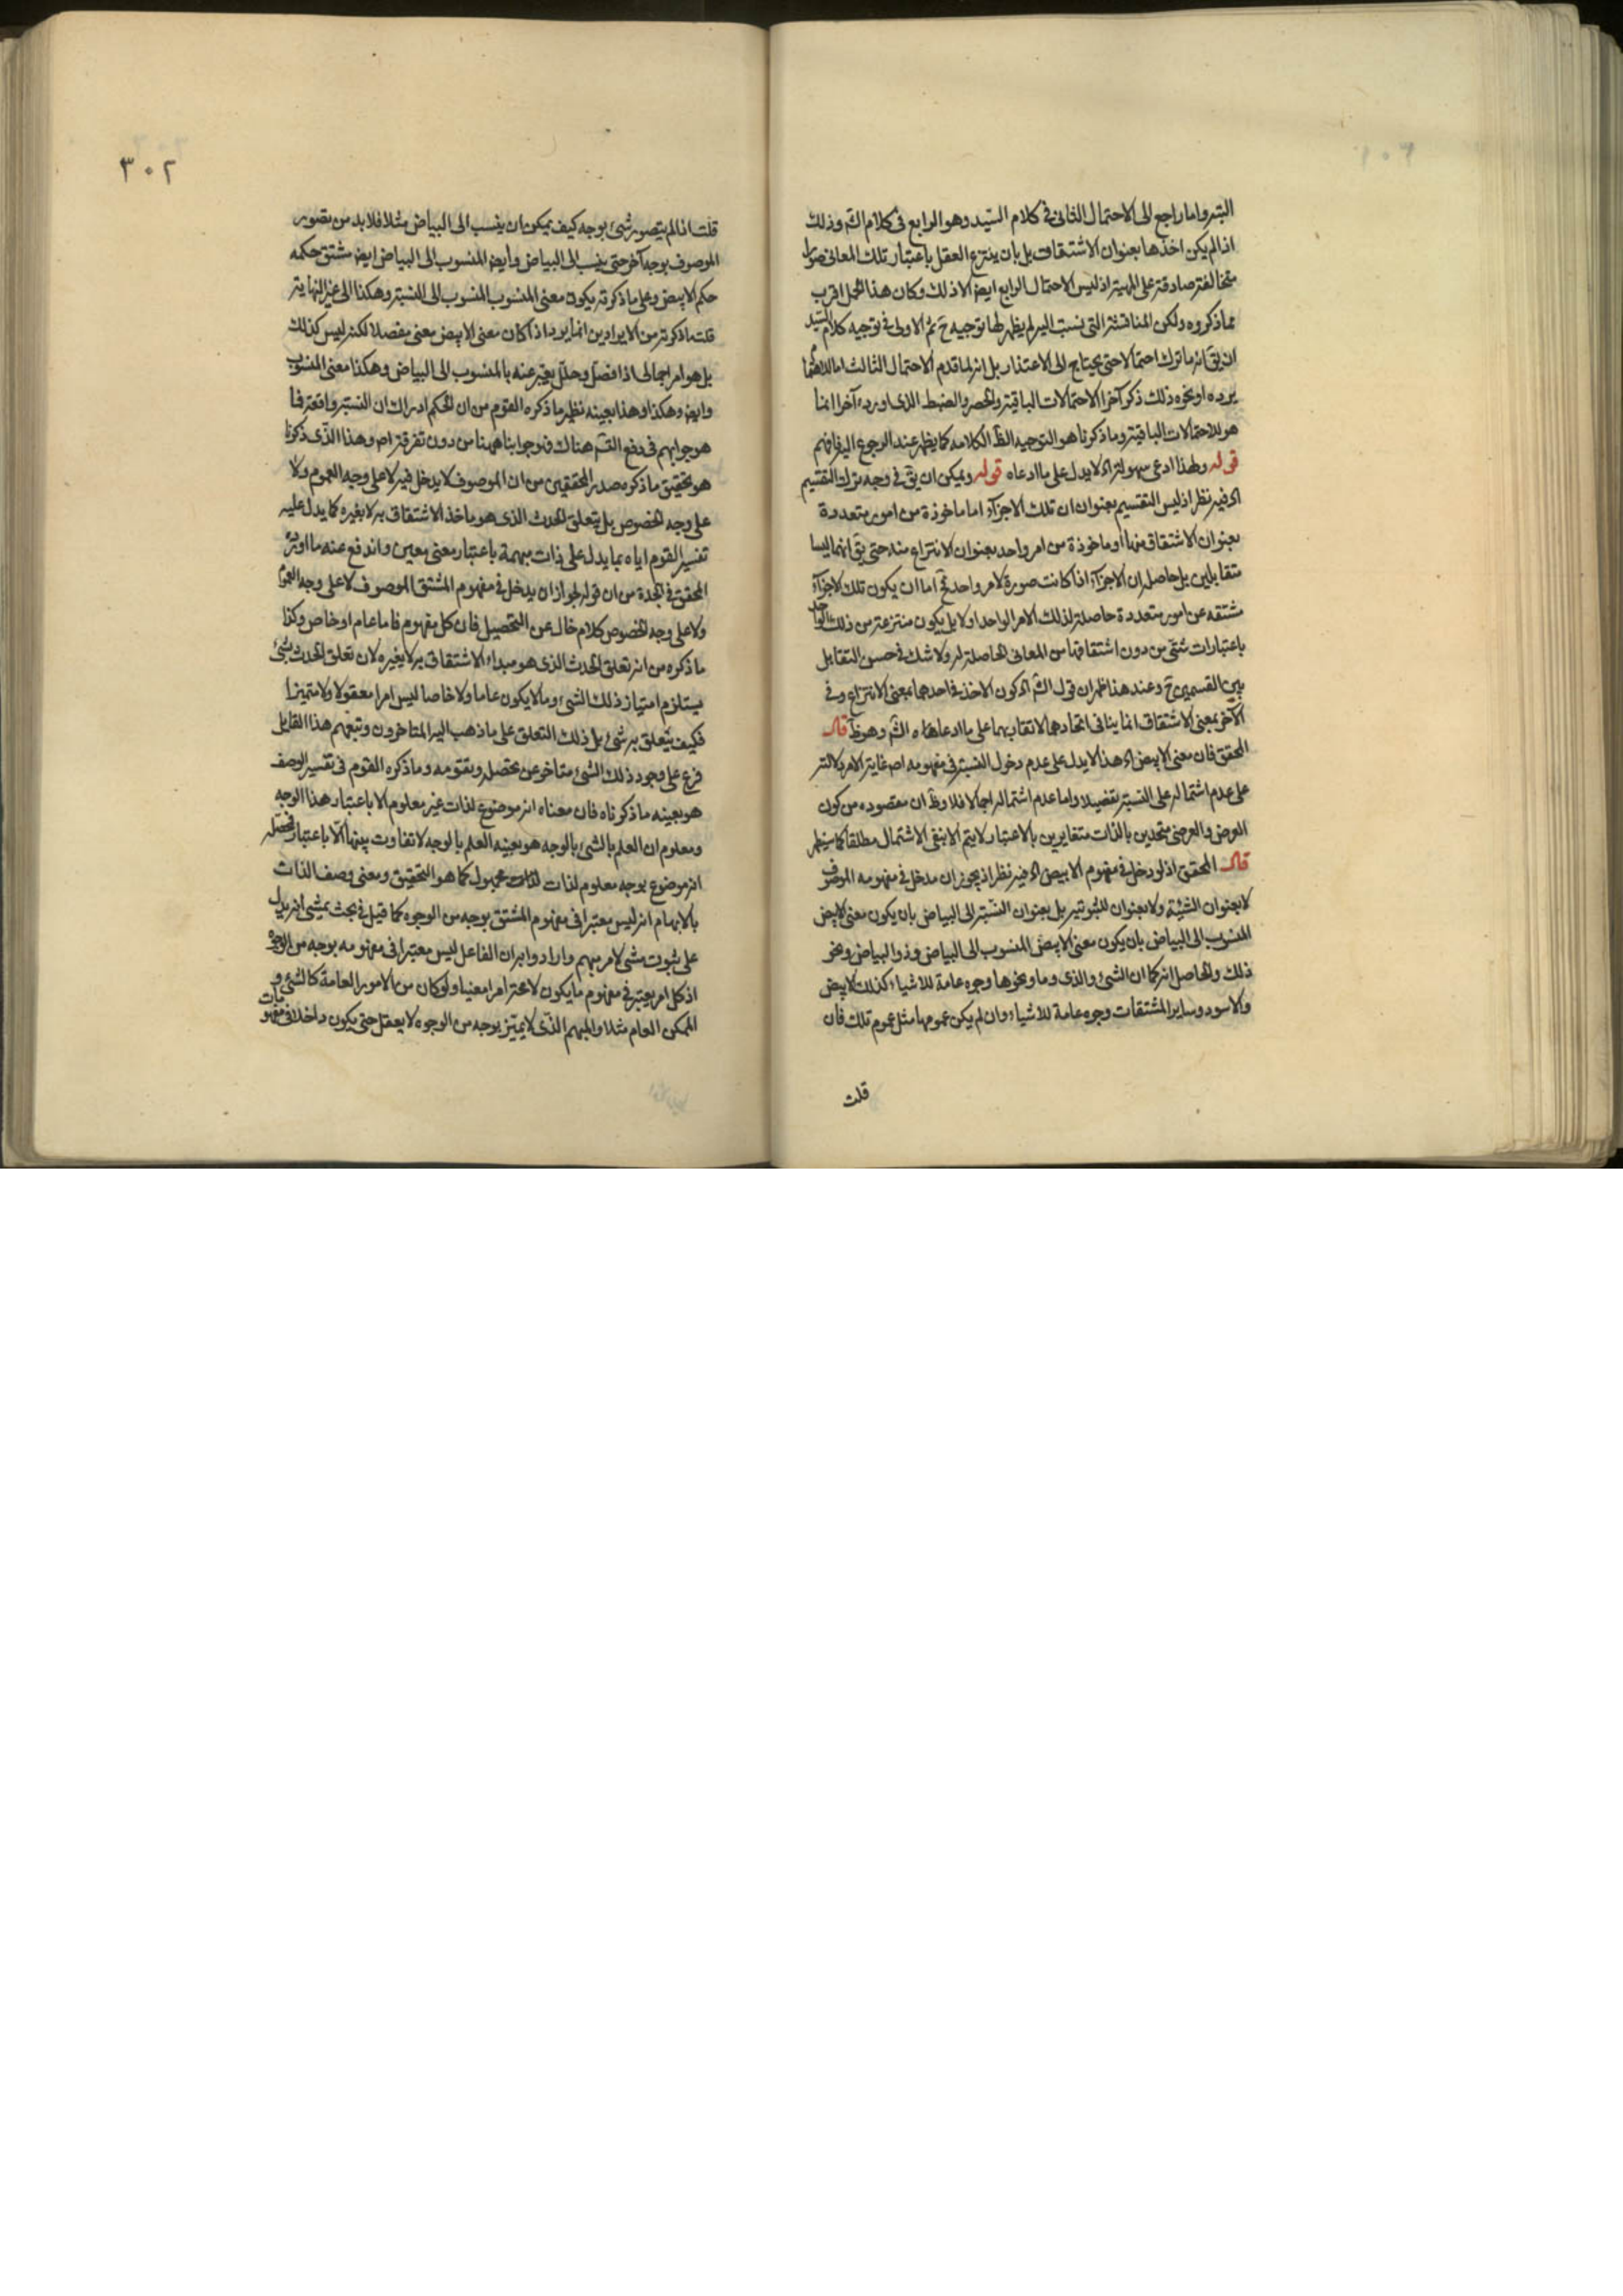 البتة واما راجع الى الاحتمال الثانى فى كلام السيد وهو الرابع فى كلام الش وذلك
اذ الم يكن اخذها بعنوان الاشتقاق بل بان ينتزع العقل باعتبار تلك المعانى صورا
متخالفة صادقة على المهية اذ ليس الاحتمال الرابع ايض الا ذلك وكان هذا الحمل اقرب
مما ذكروه ولكن المناقشة التى نسبت اليه لم يظهر لها توجيه ح ثم الاولى فى توجيه كلام السيد
ان يق انه ما ترك احتمالا حتى يحتاج الى الاعتذار بل انه لما قدم الاحتمال الثالث اما
يرده او نحوه ذلك ذكر آخرا الاحتمالات الباقية والحصر والضبط الذى اورده آخرا انما
هو للاحتمالات الباقية وما ذكرنا هو التوجيه الظ الكلامه كما يظهر عند الرجوع اليه فافهم
قوله ولهذا ادعى سهولته اه لا يدل على ما ادعاه قوله ويمكن ان يق فى وجه ترك التقسيم
اه فيه نظر اذ ليس التقسيم بعنوان ان تلك الاجزآء اما ماخوذة من امور متعددة
بعنوان الاشتقاق منها او ماخوذة من امر واحد بعنوان الانتزاع منه حتى يق انهما ليسا
متقابلين بل حاصله ان الاجزآء اذا كانت صورة لامر واحد فح اما ان يكون تلك الاجزآء
مشتقه عن امور متعددة حاصلة لذلك الامر الواحد اولا بل يكون منتزعة من ذلك الواحد
باعتبارات شتى من دون اشتقاقها من المعانى الحاصلة له ولا شك فى حسن التقابل
بين القسمين ح وعند هذا ظهر ان قول الش اه كون الاخذ فى احدهما بمعنى الانتزاع وفى
الآخر بمعنى الاشتقاق انما ينافى اتحادهما لا تقابهما على ما ادعاه الش وهو ظ قال
المحقق فان معنى الابيض اه هذا لا يدل على عدم دخول النسبة فى مفهومه اص غاية الامر دلالته
على عدم اشتماله على النسبة تفصيلا واما عدم اشتماله اجمالا فلا وظ ان مقصوده من كون
العرض والعرضى متحدين بالذات متغايرين بالاعتبار لا يتم الا بنفى الاشتمال مطلقا كما سيظهر
قال المحقق اذ لو دخل فى مفهوم الابيض اه فيه نظر اذ يجوز ان يدخل فى مفهومه الموصوف
لا بعنوان الشيئية ولا بعنوان الثوبية بل بعنوان النسبة الى البياض بان يكون معنى الابيض
المنسوب الى البياض بان يكون معنى الابيض المنسوب الى البياض وذو البياض ونحو
ذلك والحاصل انه كما ان الشئ والذى وما ونحوها وجوه عامة للاشياء كذلك الابيض
والاسود وساير المشتقات وجوه عامة للاشياء وان لم يكن عمومها مثل عموم تلك فان
قلت
٣٠٢
قلت اذا لم يتصور شئ بوجه كيف يمكن ان ينسب الى البياض مثلا فلا بد من تصور
الموصوف بوجه آخر حتى ينسب الى البياض وايض المنسوب الى البياض ايض مشتق حكمه
حكم الابيض وعلى ما ذكرته يكون معنى المنسوب المنسوب الى النسبة وهكذا الى غير النهاية
قلت ما ذكرته من الايرادين انما يرد اذا كان معنى الابيض معنى مفصلا لكنه ليس كذلك
بل هو امر اجمالى اذا فصل وحلل يعبر عنه بالمنسوب الى البياض وهكذا معنى المنسوب
وايض وهكذا وهذا بعينه نظير ما ذكره القوم من ان الحكم ادراك ان النسبة واقعة فما
هو جوابهم فى دفع التس هناك فهو جوابنا ههنا من دون تفرقة اص وهذا الذى ذكرنا
هو تحقيق ما ذكره صدر المحققين من ان الموصوف لا يدخل فيه لا على وجه العموم ولا
على وجه الخصوص بل يتعلق الحدث الذى هو ماخذ الاشتقاق به لا بغيره كما يدل عليه
تفسير القوم اياه بما يدل على ذات مبهمة باعتبار معنى معين واندفع عنه ما اورده
المحقق فى الجدة من ان قوله لجواز ان يدخل فى مفهوم المشتق الموصوف لا على وجه العموم
ولا على وجه الخصوص كلام خال عن التحصيل فان كل مفهوم فاما عام او خاص وكذا
ما ذكره من انه تعلق الحدث الذى هو مبداء الاشتقاق به لا بغيره لان تعلق الحدث بشئ
يستلزم امتياز ذلك الشئ وما لا يكون عاما ولا خاصا ليس امرا معقولا ولا متميزا
فكيف يتعلق به شئ بل ذلك التعلق على ما ذهب اليه المتاخرون وتبعهم هذا القايل
فرع على وجود ذلك الشئ متاخر عن تحصله وتقومه وما ذكره القوم فى تفسير الوصف
هو بعينه ما ذكرناه فان معناه انه موضوع لذات غير معلوم الا باعتبار هذا الوجه
ومعلوم ان العلم بالشئ بالوجه هو بعينه العلم بالوجه لا تفاوت بينهما الا باعتبار
انه موضوع بوجه معلوم لذات مجهول كما هو التحقيق ومعنى وصف الذات
بالابهام انه ليس معتبرا فى مفهوم المشتق بوجه من الوجوه كما قيل فى بحث يمشى انه يدل
على ثبوت مشى لامر مبهم وارادوا به ان الفاعل ليس معتبرا فى مفهومه بوجه من الوجوه
اذ كل امر يعتبر فى مفهوم ما يكون لا محة امرا معينا ولو كان من الامور العامة كالشئ و
الممكن العام مثلا والمبهم الذى لا يميز بوجه من الوجوه لا يعقل حتى يكون داخلا فى مفهومات